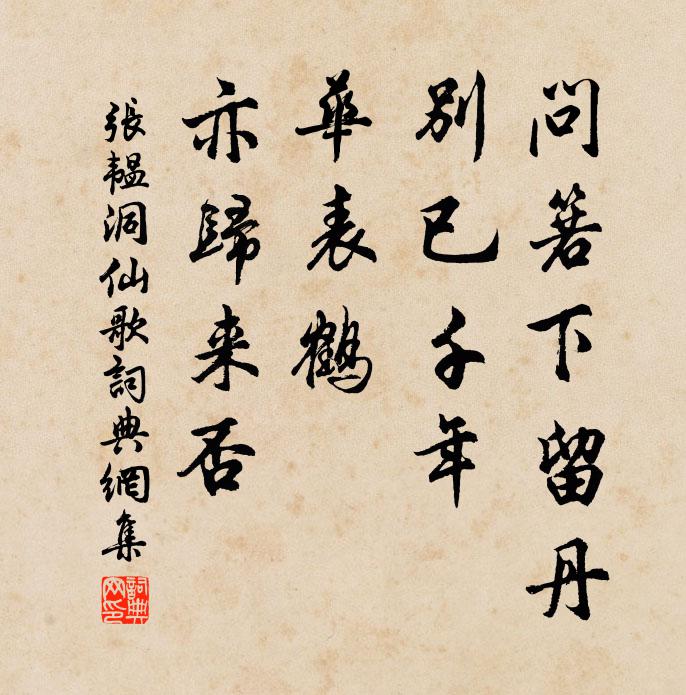 問箬下留丹
別已千年
華表鶴
亦歸来否
張韞洞仙歌詞典網集
詞典网印